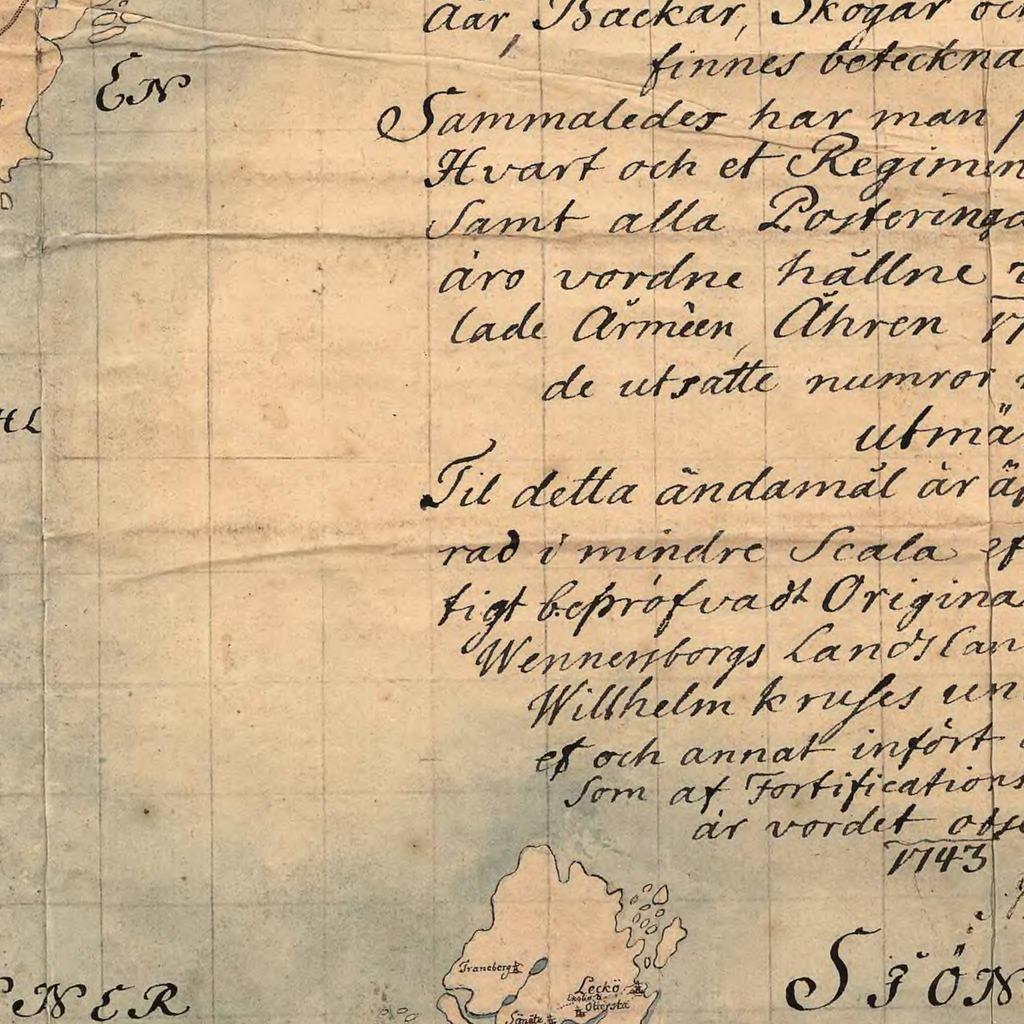 Åar, Backar, Skogar och
finnes beteckna
EN
Sammaledes har man p
Hvart och et Regimen
Samt alla Posteringa
äro vordne hållne
lade Armèen, Åhren 17
de utsatte numror
HL
utmä
Til detta ändamål är
rad i mindre Scala ef
tigt bepröfvadt Origina
Wennersborgs Landslan
Willhelm kruses un
et och annat infört
Som af Fortifications
är vordet obse
1743
Traneberg
Leckö
Ottersta
NER
SJÖN